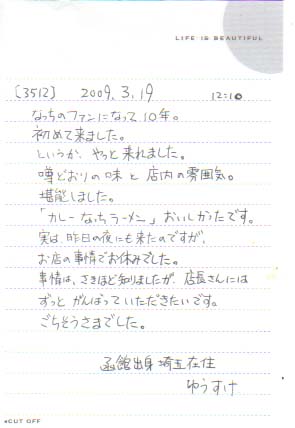 LIFE IS BEAUTIFUL
[3512] 2009.3.19 12:10
なっちのファンになって10年。
初めて来ました。
というか、やっと来れました。
噂どおりの味と店内の雰囲気。
堪能しました。
「カレーなっちラーメン」おいしかったです。
実は、昨日の夜にも来たのですが、
お店の事情でお休みでした。
事情は、さきほど知りましたが、店長さんには
ずっとがんばっていただきたいです。
ごちそうさまでした。
函館出身埼玉在住
ゆうすけ
CUT OFF